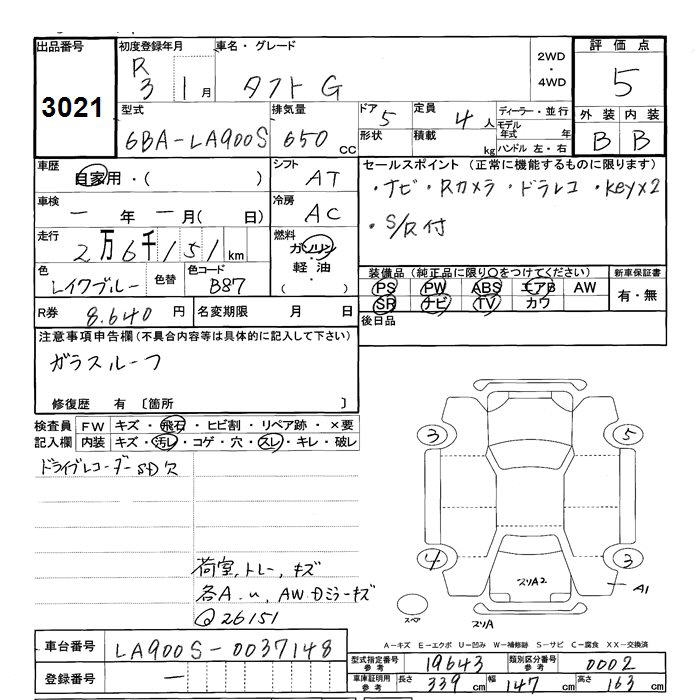 出品番号 初度登録年月 車名・グレード 評価点
3021 R3 1月 タフト G 2WD・4WD 5
型式 排気量 ドア 定員 ディーラー・並行 外装 内装
6BA-LA900S 650cc 5 4人 モデル年式 年 B B
形状 積載 kg ハンドル 左・右
車歴 シフト セールスポイント (正常に機能するものに限ります)
自家用・( ) AT ・ナビ・Rカメラ・ドラレコ・Key×2
車検 冷房 ・S/R付
一年一月(日) AC
走行 燃料 装備品(純正品に限り○をつけてください) 新車保証書
2万6千151km ガソリン PS PW ABS エアB AW 有・無
色 色替 色コード 軽油 SR ナビ TV カワ
レイクブルー B87 ( )
R券 8.640円 名変期限 月 日 後日品
注意事項申告欄(不具合内容等は具体的に記入して下さい)
ガラスルーフ
修復歴 有 〔箇所 〕
検査員 FW キズ・飛石・ヒビ割・リペア跡・×要
記入欄 内装 キズ・汚レ・コゲ・穴・スレ・キレ・破レ
ドライブレコーダーSD欠
3 5
4 3
スリA2 A1
荷室,トレー,キズ
各A.u,AW.Dミラーキズ
Q26151
スペア スリA
A-キズ E-エクボ U-凹み W-補修跡 S-サビ C-腐食 XX-交換済
車台番号 LA900S-0037148
型式指定番号参考 19643 類別区分番号参考 0002
登録番号 一
車庫証明用参考 長さ 339cm 幅 147cm 高さ 163cm